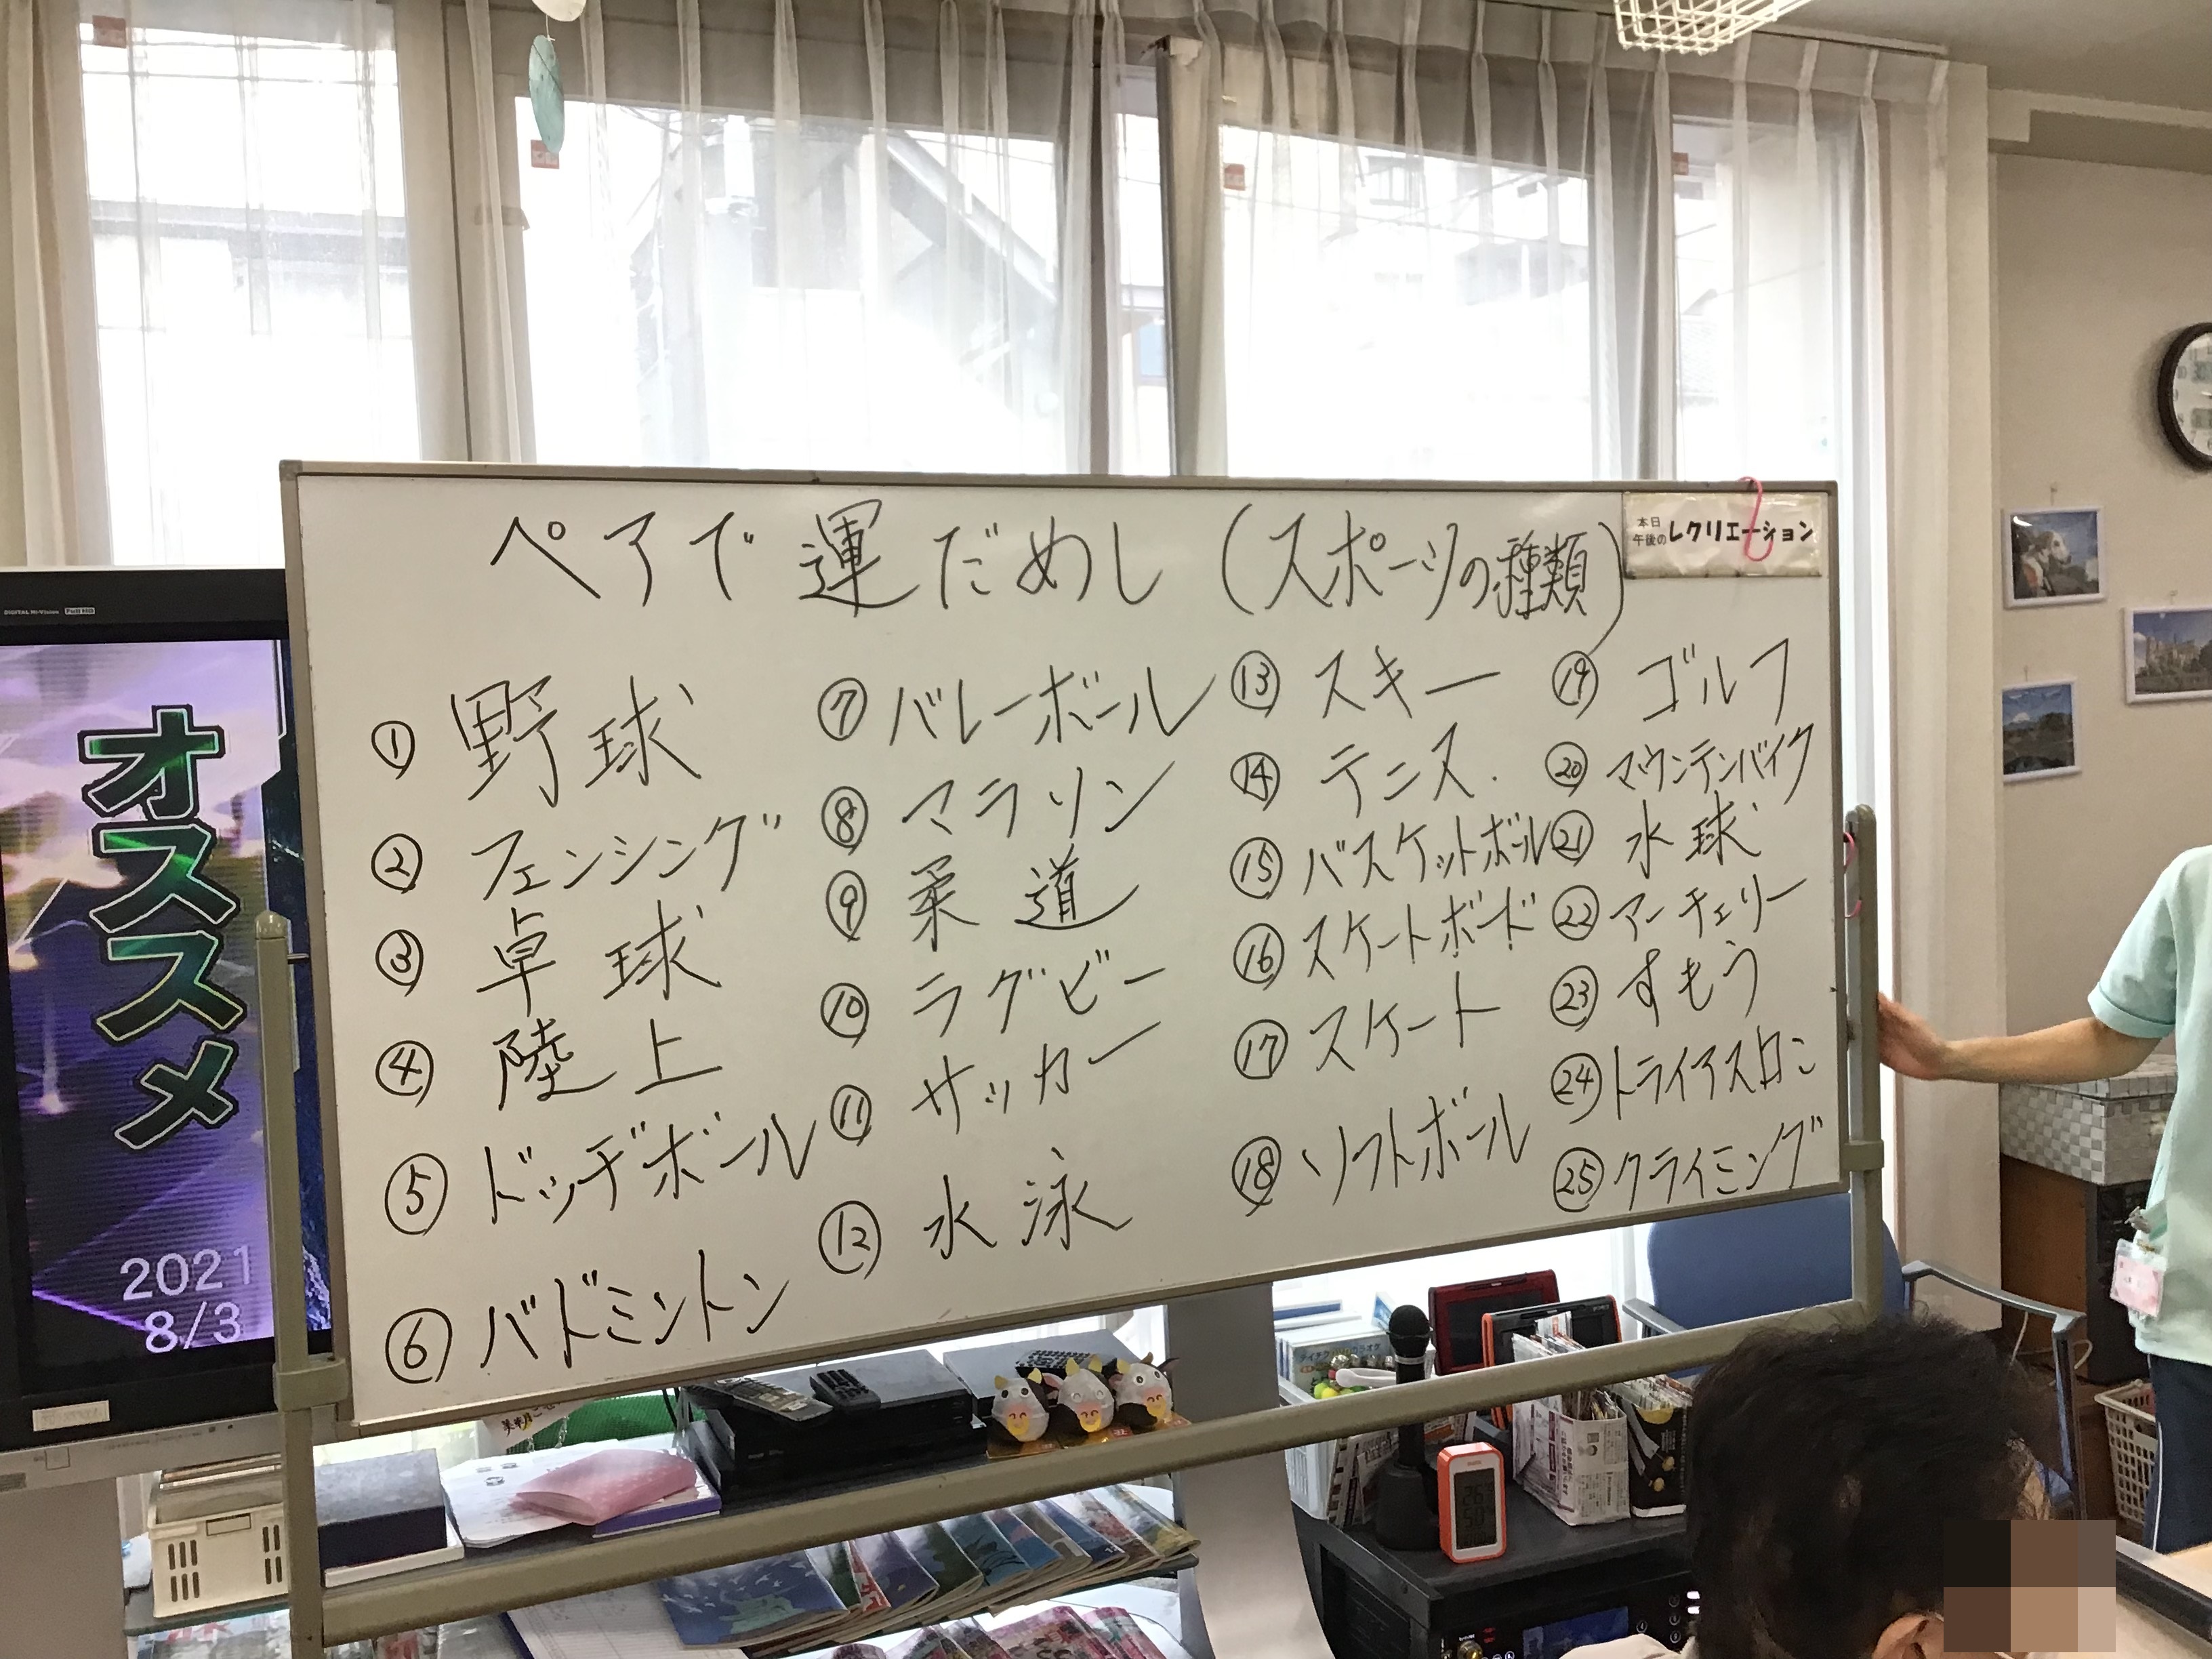 ペアで運だめし（スポーツの種類）
本日
午後のレクリエーション
① 野球
② フェンシング
③ 卓球
④ 陸上
⑤ ドッヂボール
⑥ バドミントン
⑦ バレーボール
⑧ マラソン
⑨ 柔道
⑩ ラグビー
⑪ サッカー
⑫ 水泳
⑬ スキー
⑭ テニス
⑮ バスケットボール
⑯ スケートボード
⑰ スケート
⑱ ソフトボール
⑲ ゴルフ
⑳ マウンテンバイク
㉑ 水球
㉒ アーチェリー
㉓ すもう
㉔ トライアスロン
㉕ クライミング
オススメ
2021
8/3